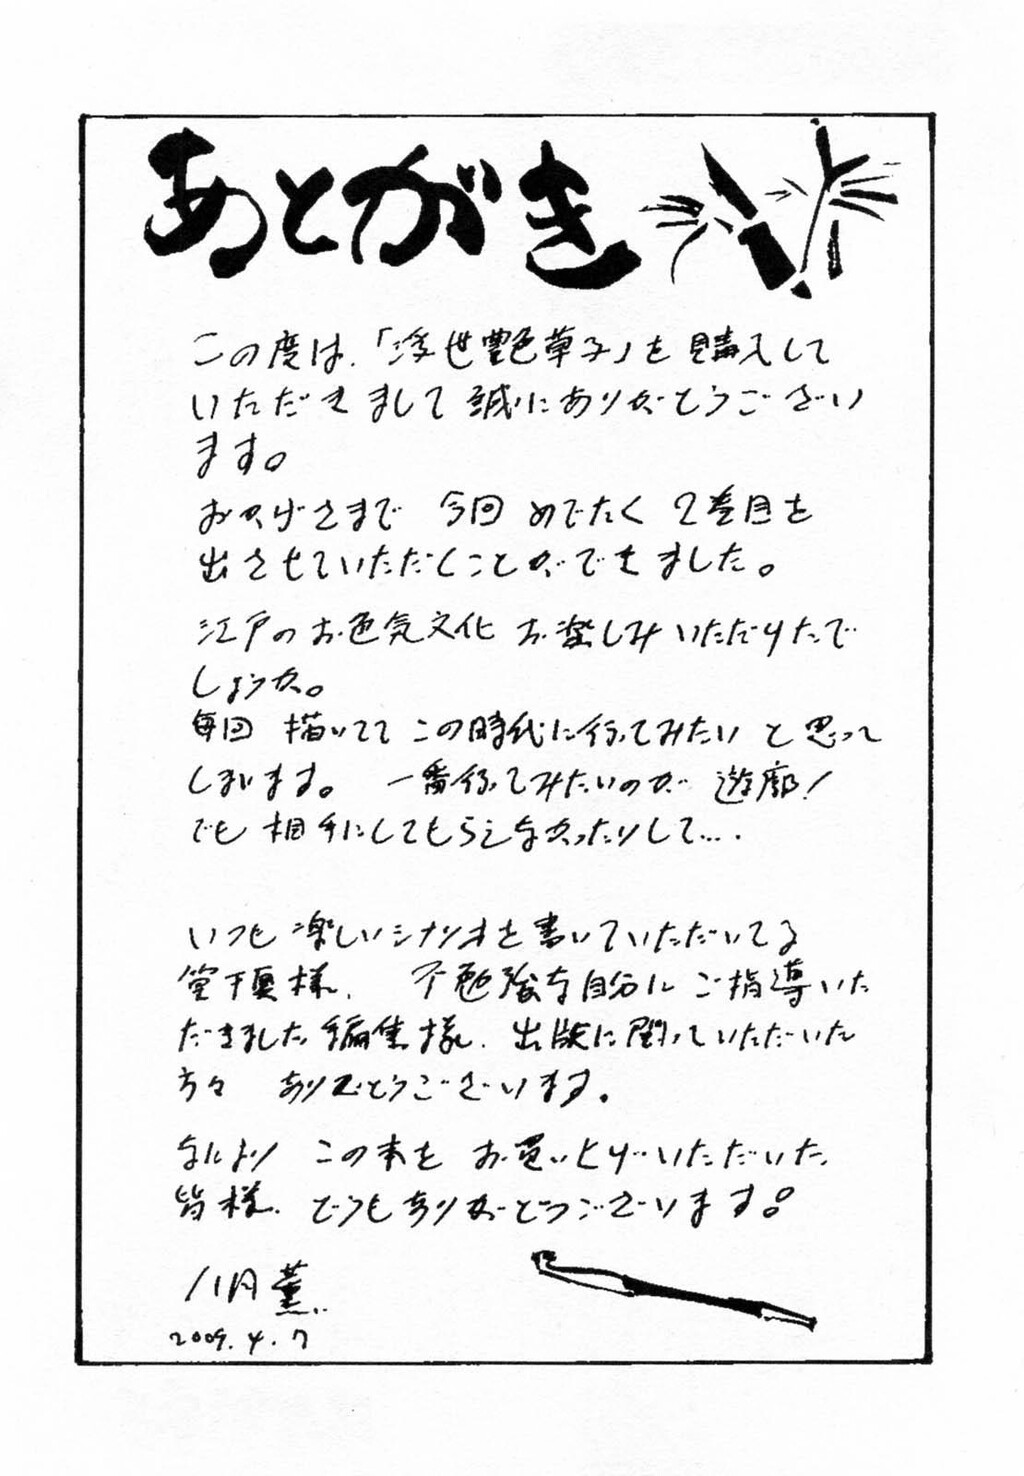 あとがき
この度は、「浮世艶草子」を購入して
いただきまして誠にありがとうござい
ます。
おかげさまで 今回 めでたく 2巻目を
出させていただくことができました。
江戸のお色気文化 お楽しみいただけたで
しょうか。
毎回 描いてて この時代に行ってみたい と思って
しまいます。 一番行ってみたいのが 遊廓!
でも 相手にしてもらえなかったりして….
いつも 楽しいシナリオを書いていただいてる
様、 不勉強な自分に ご指導いた
だきました編集様、出版に関っていただいた
方々 ありがとうございます。
なにより この本を お買いあげいただいた
皆様、どうもありがとうございます。
八月薫
2009.4.7